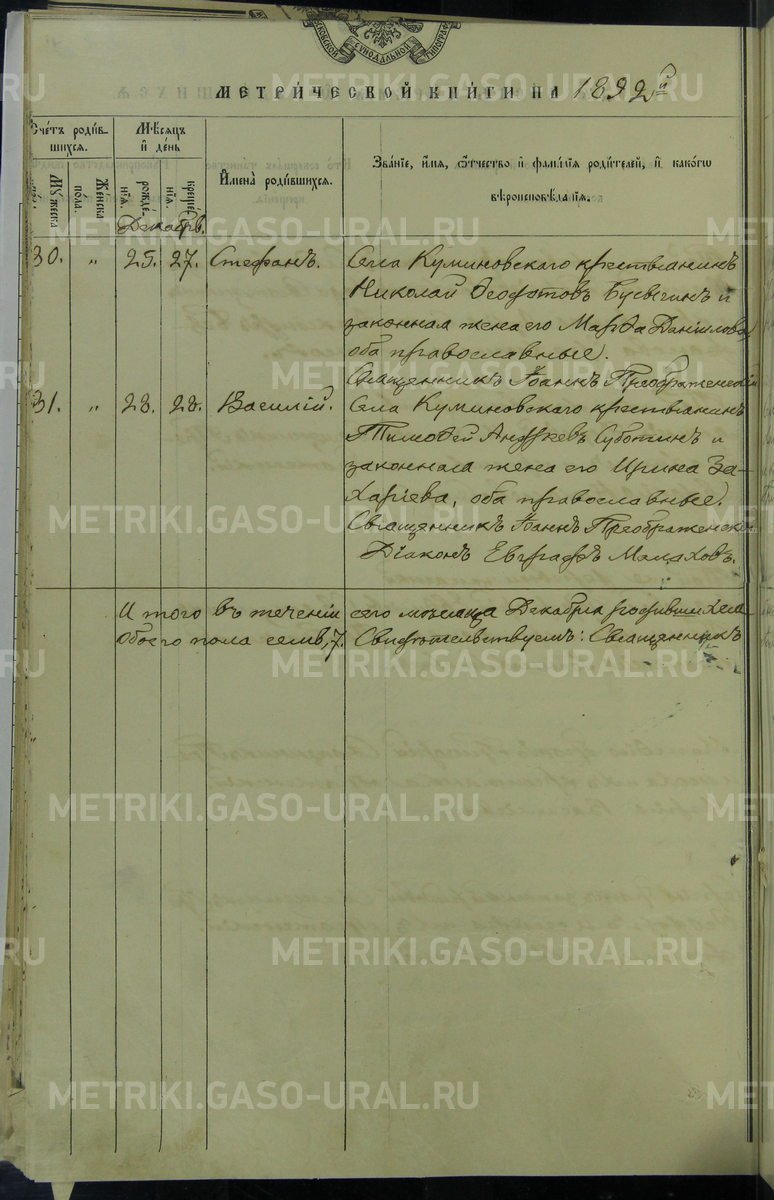 СѴНОДАЛЬНОЙ
МЕТРИ́ЧЕСКОЙ КНИ́ГИ НА 1892й
Сче́тъ роди́в-
шихся.
Мѣ́сяцъ
и҆ де́нь
Му́жеска
Же́нска
по́ла.
рожде́-
нїя.
креще́-
нїя
И҆мена̀ роди́вшихся.
Зва́нїе, и҆́мя, ѻ҆́тчество и҆ фами́лїя роди́телей, и҆ како́гѡ
вѣроисповѣ́данїя.
Декабрь.
30. „ 25. 27. Стефанъ. Села Куминовскаго крестьянинъ
Николай Ѳеофотовъ и
законная жена его Марѳа Данiилова,
оба православные.
Священникъ Iоаннъ Преображенскiй
31. „ 28. 28. Василiй. Села Куминовскаго крестьянинъ
Тимоѳей Андреевъ Суботинъ и
законная жена его Ирина За-
харiева, оба православные.
Священникъ Iоаннъ Преображенскiй
Дiаконъ Евграфъ Малаховъ.
Итого въ теченiи сего месяца Декабря родившихся
обоего пола семь, 7. Свидѣтельствуемъ: Священникъ
METRIKI.GASO-URAL.RU